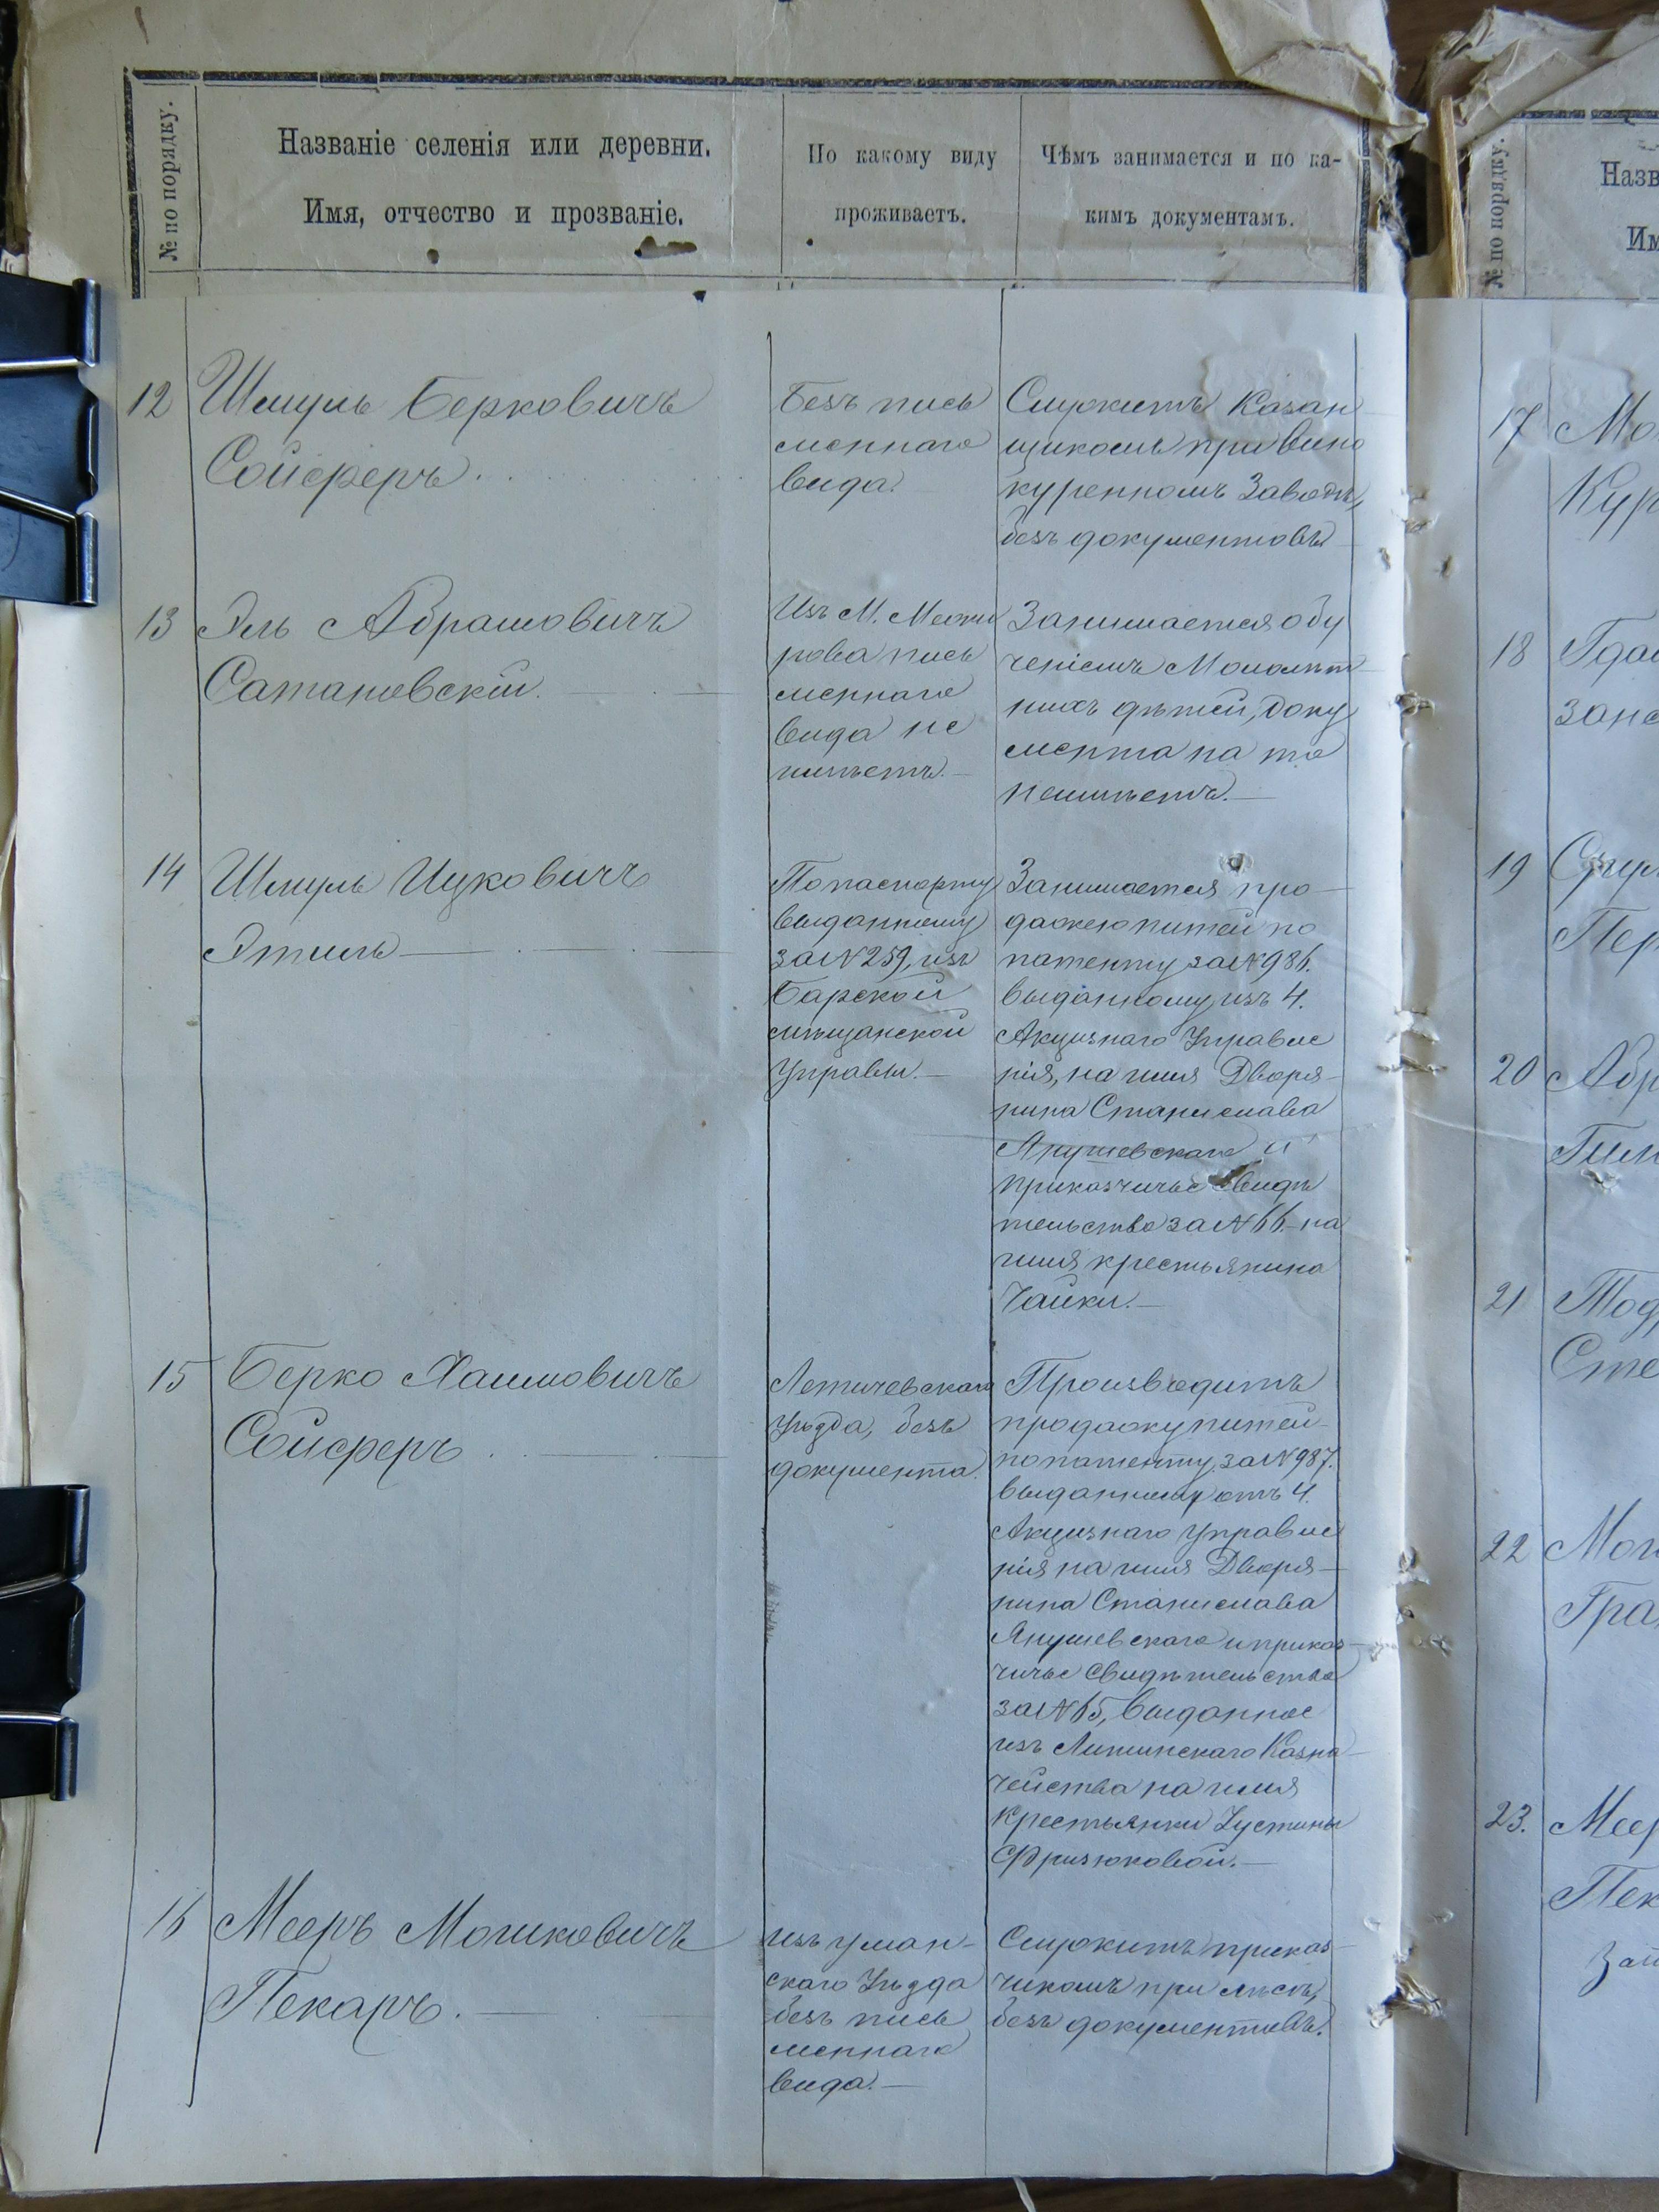 № по порядку.
Названіе селенія или деревни.
Имя, отчество и прозваніе.
По какому виду
проживаетъ.
Чѣмъ занимается и по ка-
кимъ документамъ.
12
Шмуль Берковичъ
Сойферъ.
Безъ пись
меннаго
вида.
Служитъ Казан
щикомъ при вино
куренномъ Заводѣ,
безъ документовъ
13
Эль Абрамовичъ
Сатановскій.
Изъ М. Межи
рова пись
меннаго
вида не
имѣетъ.-
Занимается обу
ченіемъ Малолѣт
нихъ дѣтей, доку
мента на то
неимѣетъ.-
14
Шмуль Ицковичъ
Этиль
По паспорту
выданному
за № 259, изъ
Барской
мѣщанской
Управы.-
Занимается про-
дажею питей по
патенту за № 986.
выданному изъ 4.
Акцизнаго Управле
нія, на имя Дворя-
нина Станислава
Янушевскаго и
приказчичье Свидѣ
тельство за № 66.- на
имя крестьянина
Чайки.-
15
Берко Хаимовичъ
Сойферъ
Летичевскаго
уѣзда, безъ
документа.
Производитъ
продажу питей
по патенту за № 987.
выданному отъ 4.
Акцизнаго управле
нія на имя Дворя-
нина Станислава
Янушевскаго и приказ-
чичье свидѣтельство
за № 65, выданное
изъ Литинскаго Казна-
чейства на имя
Крестьянки Густины
Фризюковой.-
16
Мееръ Мошковичъ
Пекаръ.
изъ уман-
скаго Уѣзда
безъ пись
меннаго
вида.-
Служитъ приказ-
чикомъ при лѣсѣ,
безъ документовъ.
№ по порядку.
Назв
Им
17
Мо
Кур
18
Гда
Зане
19
Пер
20
Абр
Гил
21
Тод
Сте
22
Мош
Гра
23.
Меер
Пек